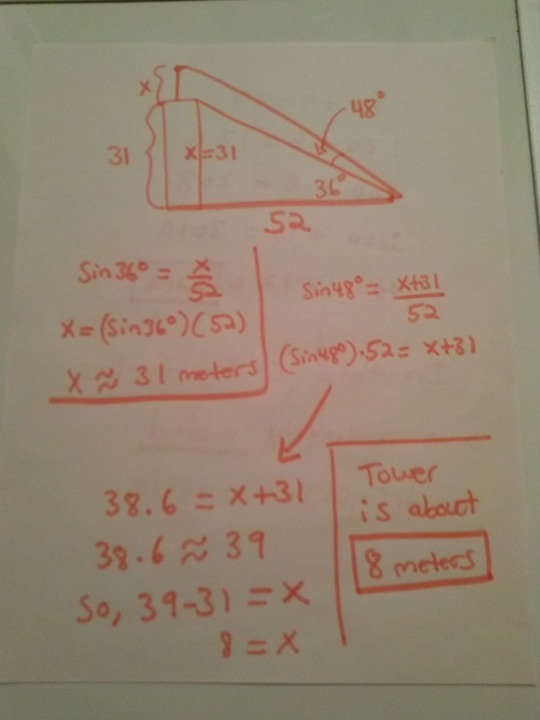 x
48°
31
x=31
36°
52
Sin36° = x/52
x=(Sin36°)(52)
x ≈ 31 meters
Sin48° = x+31/52
(Sin48°)·52 = x+31
38.6 = x+31
38.6 ≈ 39
So, 39-31 = x
8 = x
Tower
is about
8 meters